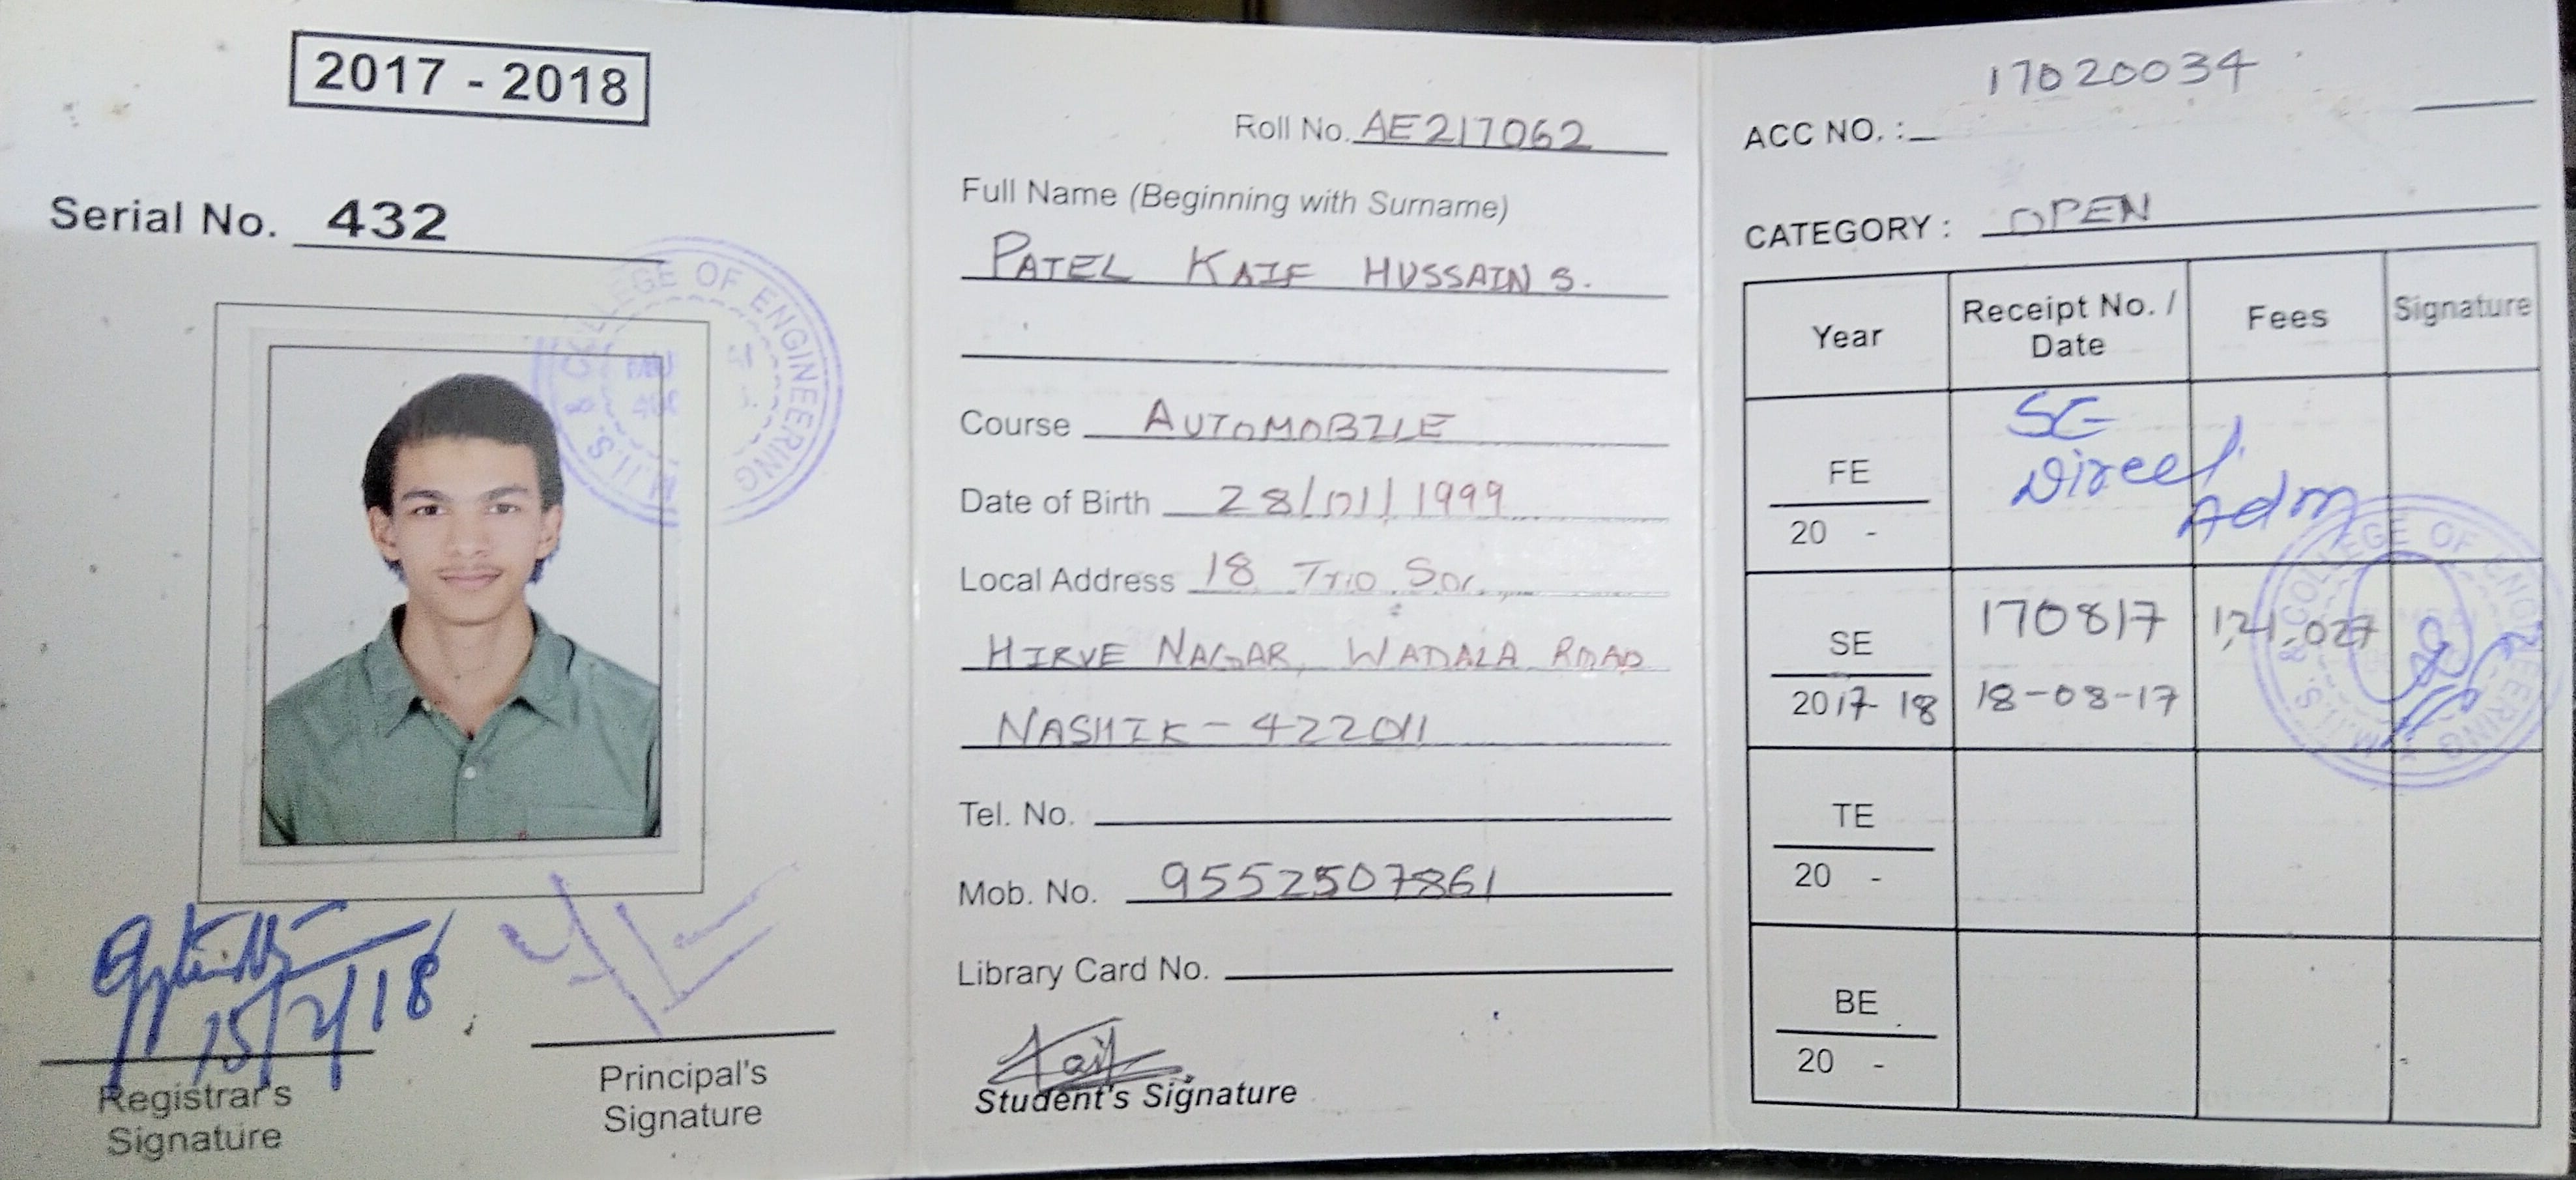 2017 - 2018
Serial No. 432
COLLEGE OF ENGINEERING
Registrar's
Signature
15/2/18
Principal's
Signature
Roll No. AE217062
Full Name (Beginning with Surname)
PATEL KAIF HUSSAIN S.
Course AUTOMOBILE
Date of Birth 28/01/1999
Local Address 18 Trio Soc.
HIRVE NAGAR, WADALA ROAD
NASHIK - 422011
Tel. No.
Mob. No. 9552507861
Library Card No.
Kaif
Student's Signature
17020034
ACC NO. :
CATEGORY : OPEN
Year Receipt No. / Date Fees Signature
FE
20 -
Direct Adm
SE 170817 1,21,027
2017-18 18-08-17
COLLEGE OF ENGINEERING
TE
20 -
BE
20 -